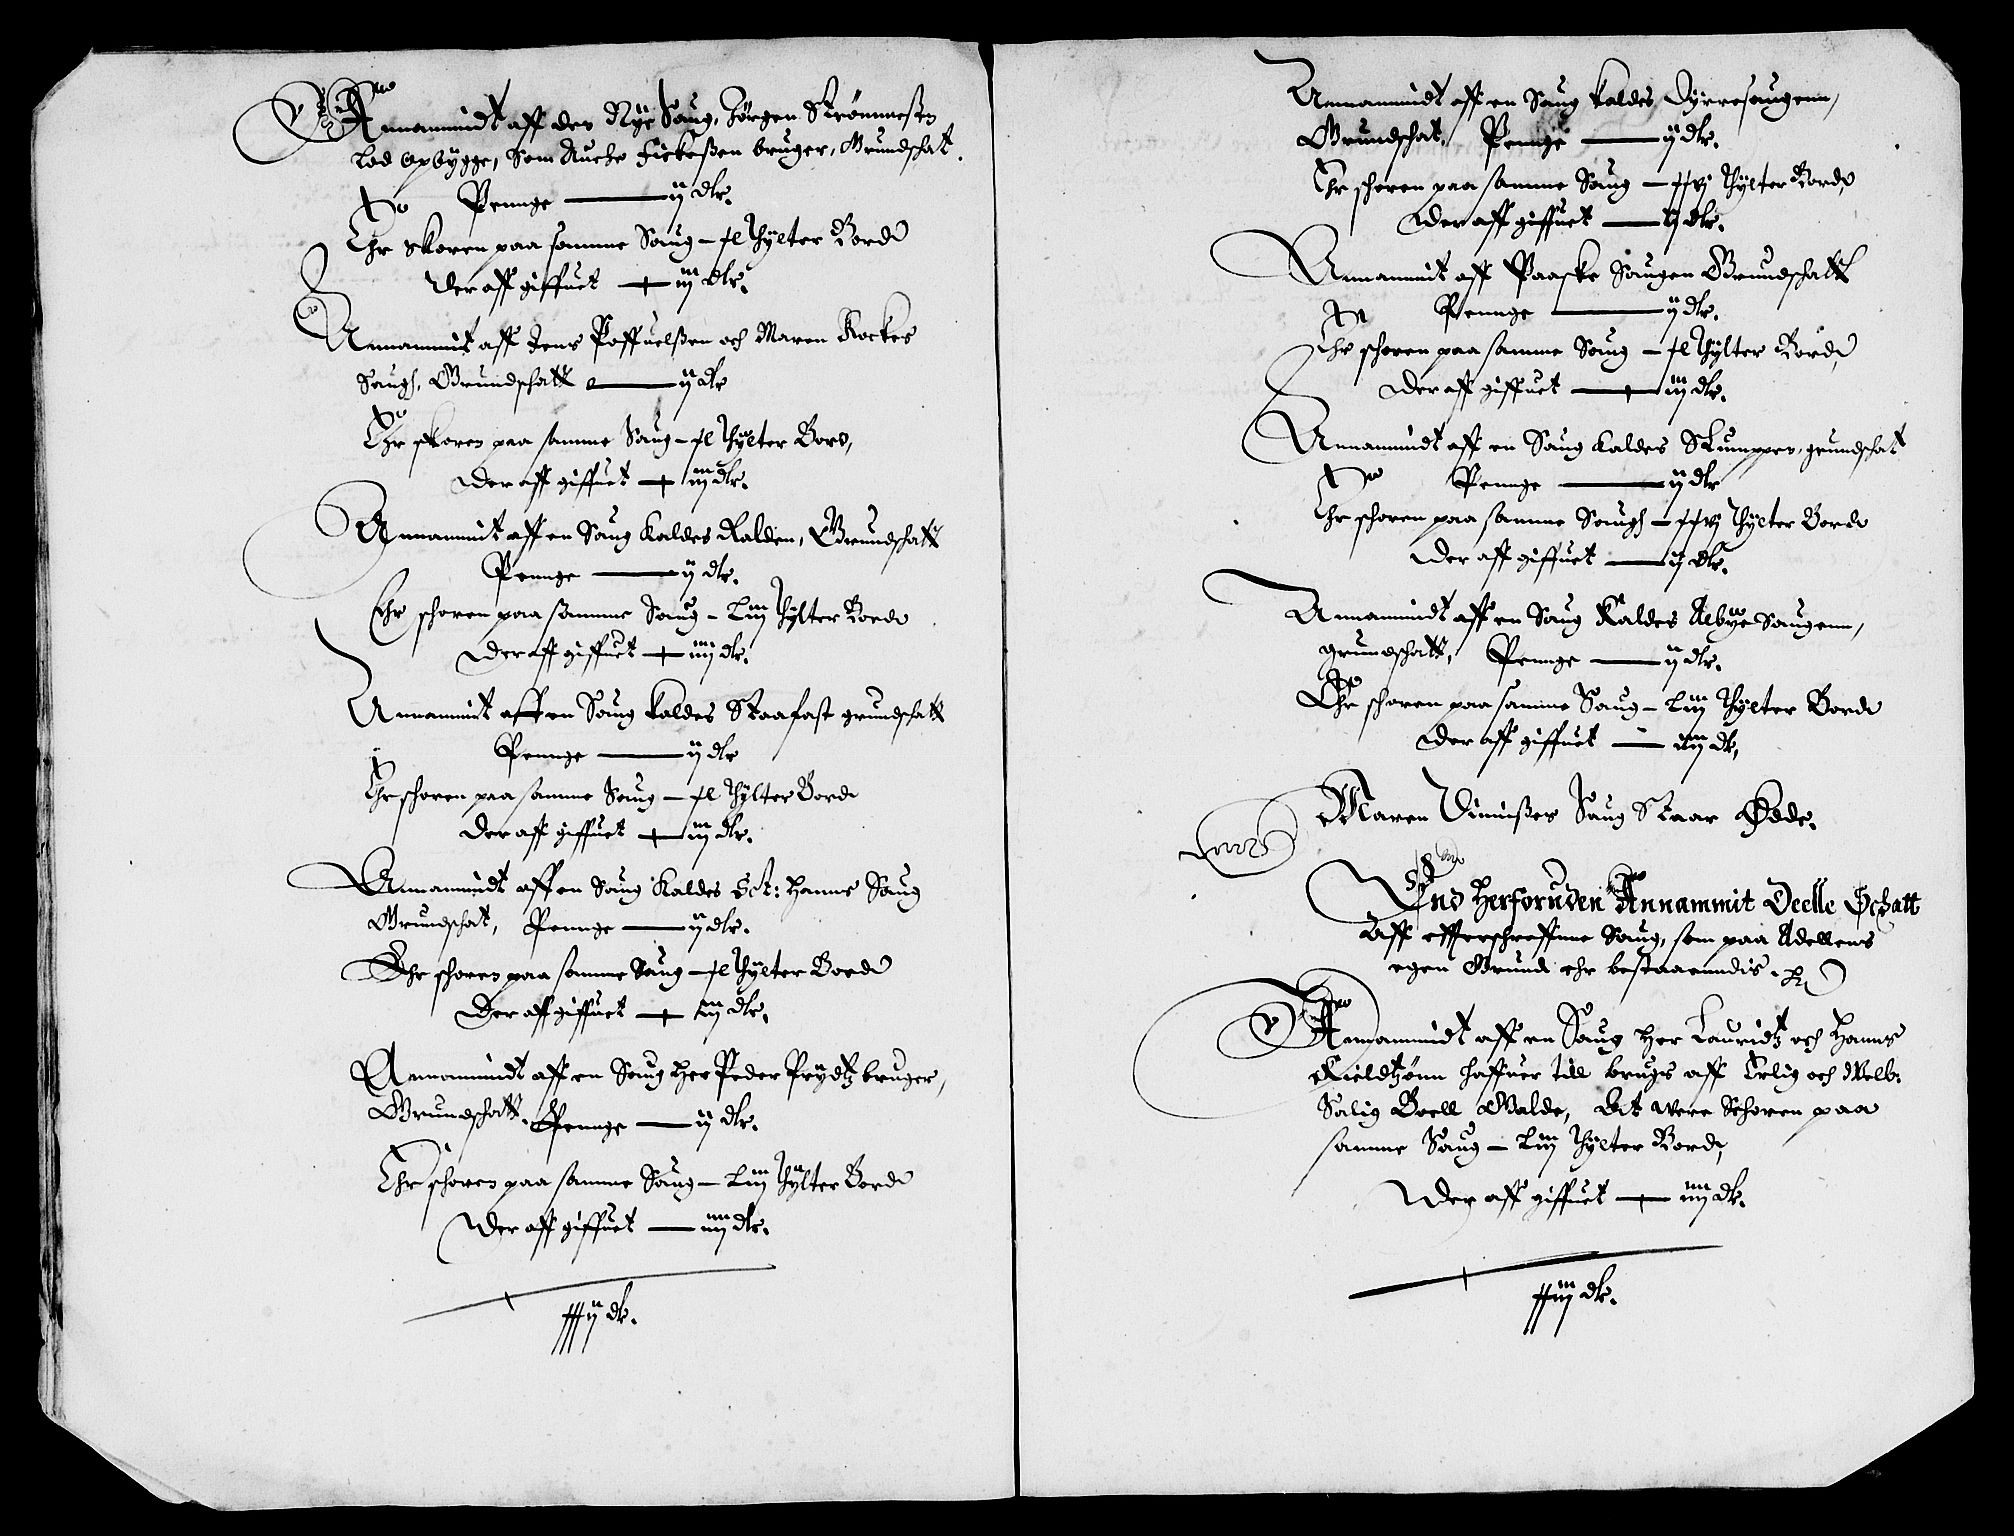 Annammidt aff den Nye Saug, Jörgen Strömmesen
lod opbÿgge, Som Auche Fickeßen bruger, Grundschat.
Pennge — ij dlr.
Ehr skoren paa samme Saug — jc Thÿlter Bord
Der aff giffuet — iij dlr.
Annammit aff Jens Poffuelßen och Maren Kockes
Saugh, Grundschatt — ij dlr
Ehr skoren paa samme Saug — jc Thÿlter Bord,
Der aff giffuet — iij dlr.
Annammit aff en Saug kaldes Ralden, Grundschatt
Pennge — ij dlr.
Ehr schoren paa samme Saug — Liij Thÿlter Bord
Der aff giffuet — iiij dlr.
Annammit aff en Saug kaldes Staafast grundschatt
Pennge — ij dlr
Ehr schoren paa samme Saug — jc Thÿlter Bord
Der aff giffuet — iij dlr.
Annammidt aff en Saug kaldes Sct: Hanns Saug
Grundschat, Pennge — ij dlr.
Ehr schoren paa samme Saug — jc Thÿlter Bord
Der aff giffuet — iij dlr.
Annammidt aff en Saug her Peder Prÿdtz bruger,
Grundschatt. Pennge — ij dlr.
Ehr schoren paa samme Saug — Liij Thÿlter Bord
Der aff giffuet — iiij dlr.
xxxij dlr.
Annammidt aff en Saug kaldes Dÿrresaugenn,
Grundschat, Pennge — ij dlr.
Ehr schoren paa samme Saug — xxvj Thÿlter Bord,
Der aff giffuet — ij dlr.
Annammit aff Paaske Saugen Grundschatt
Pennge — ij dlr.
Ehr schoren paa samme Saug — jc Thÿlter Bord,
Der aff giffuet — iij dlr.
Annammidt aff en Saug kaldes Stumppen, grundschat
Pennge — ij dlr
Ehr schoren paa samme Saugh — xxvj Thÿlter Bord
Der aff giffuet — ij dlr.
Annammidt aff en Saug kaldes Albÿe Saugenn,
grundschatt, Pennge — ij dlr.
Ehr schoren paa samme Saug — Liij Thÿlter Bord
Der aff giffuet — iiij dlr,
Maren Vinnißes Saug Staar Øde.
End herforuden Annammit Deelle Schatt
Aff effterschreffne Saug, som paa Adellens
egen Grund ehr bestaaenndis.
Annammidt aff en Saug her Lauridtz och Hanns
Kieldtzönn haffuer till brugs aff Erlig och Welb:
Salig Boell Galde, Dit were Schoren paa
samme Saug — Liij Thÿlter Bord,
Der aff giffuet — iiij dlr.
xxiij dlr.